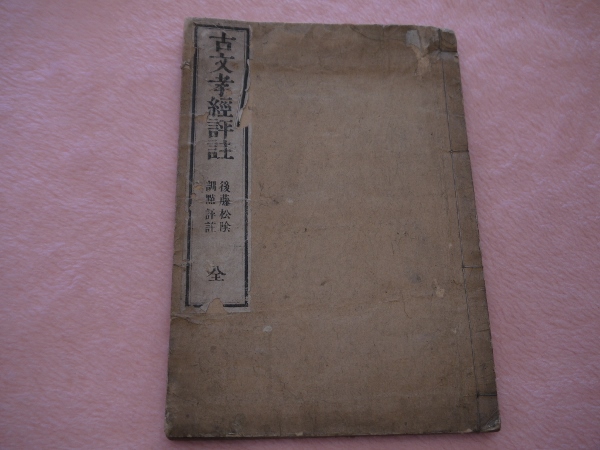 古文孝經評註
後藤松陰
訓點評註
全